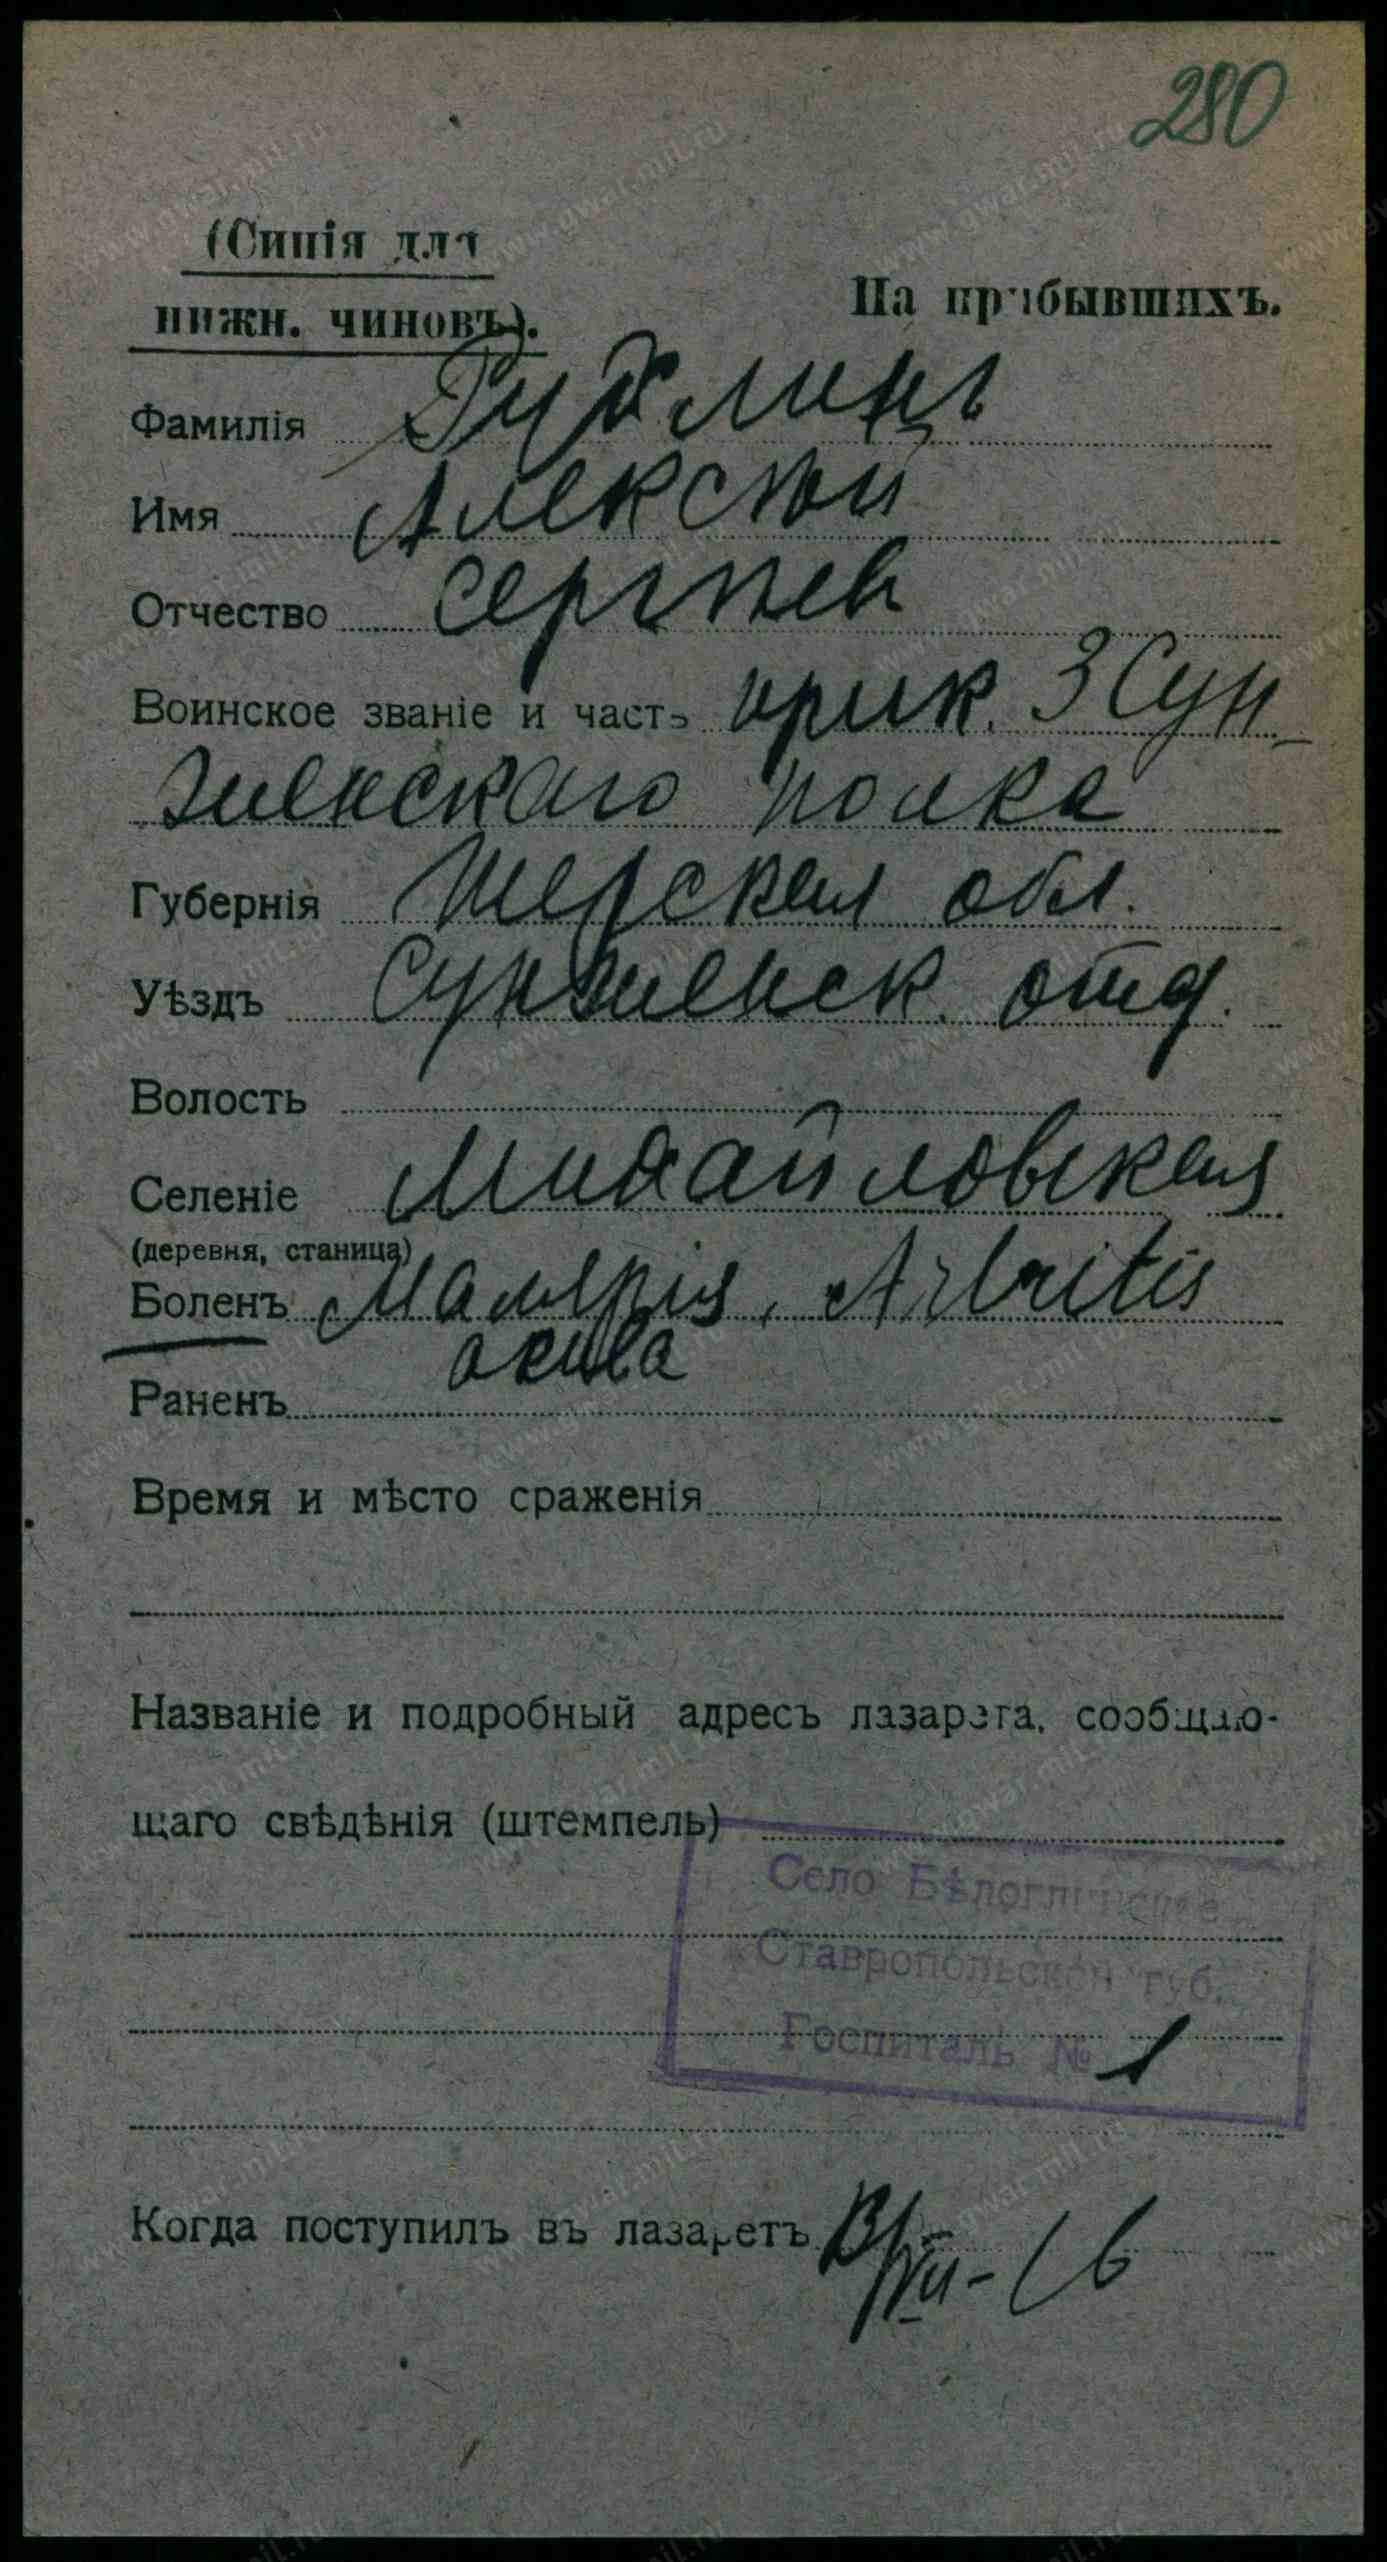 280
(Синія для
нижн. чиновъ).
На прибывшихъ.
Фамилія Рубмецъ
Имя Алексѣй
Отчество Сергѣев
Воинское званіе и часть прик. 3 Сун-
женскаго полка
Губернія Терская обл.
Уѣздъ Сунженск. отд.
Волость
Селеніе Михайловская
(деревня, станица)
Боленъ Малярія, Artritis
Раненъ
Время и мѣсто сраженія
Названіе и подробный адресъ лазарета, сообщаю-
щаго свѣдѣнія (штемпель)
Село Бѣлоглинское
Ставропольской губ.
Госпиталь № 1
Когда поступилъ въ лазаретъ